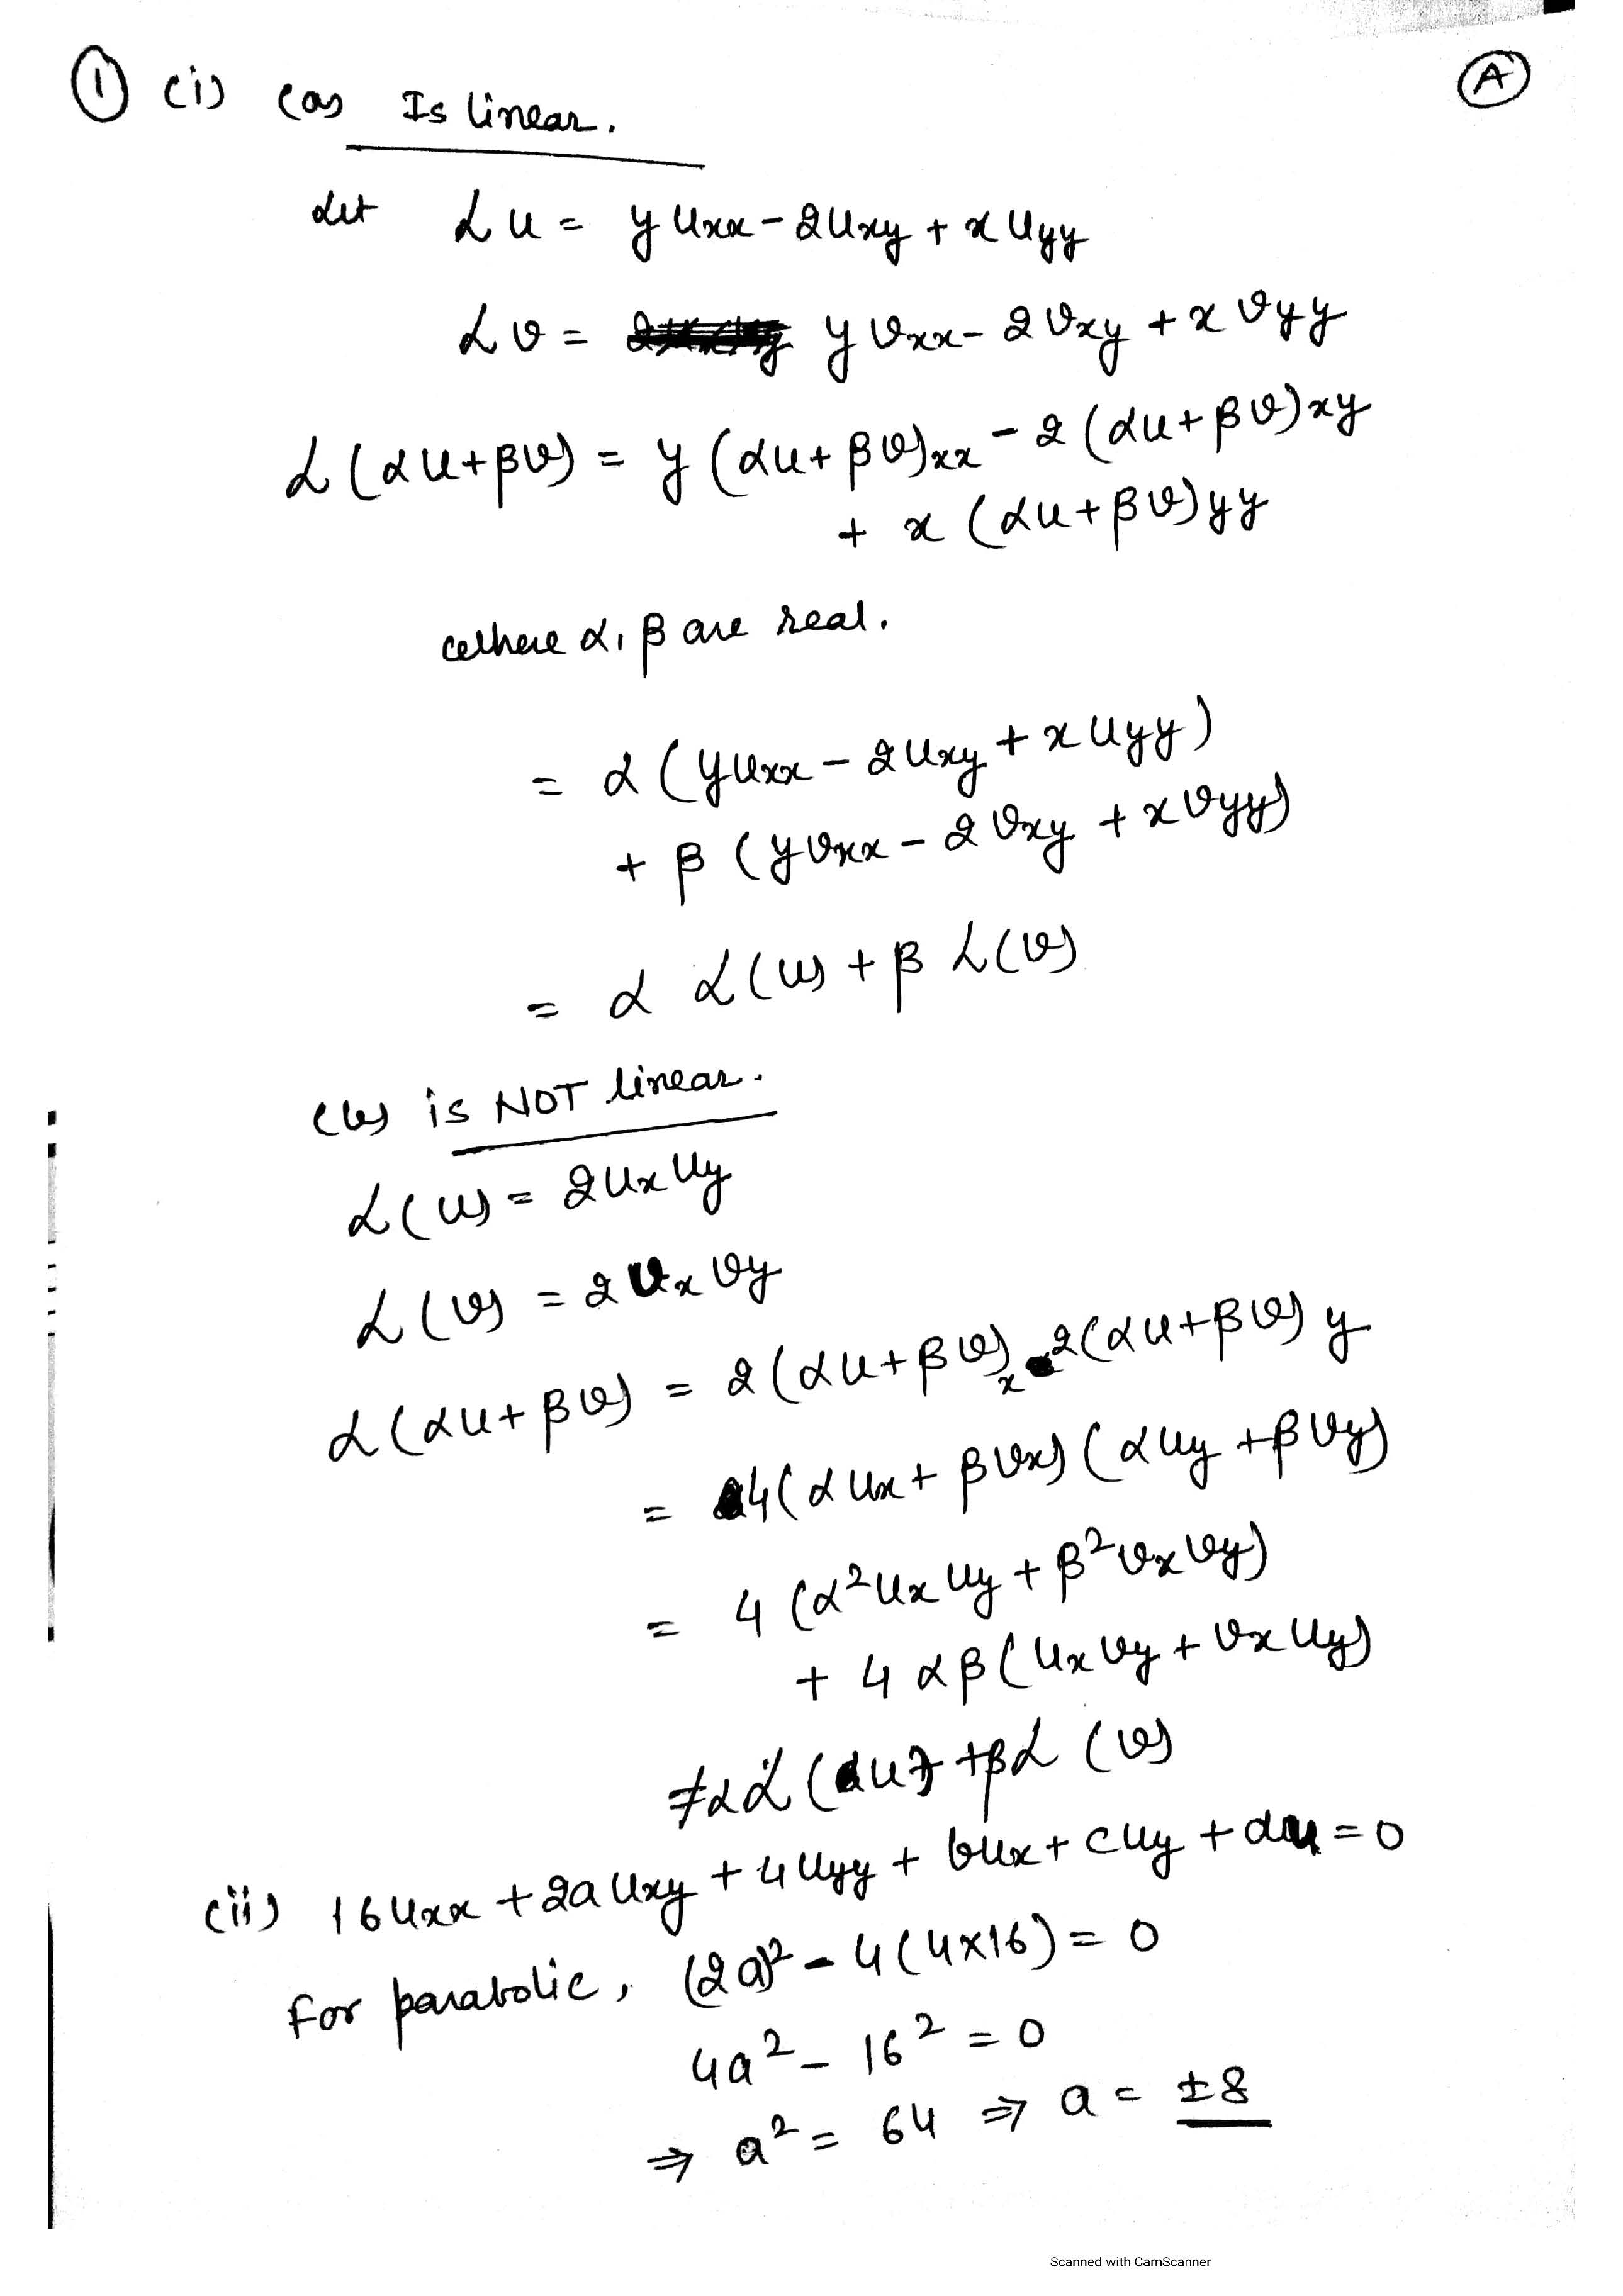 ① (i) (a) Is linear. Ⓐ
Let L u = y uxx - 2uxy + x uyy
L v = y vxx - 2 vxy + x vyy
L (αu+βv) = y (αu+βv)xx - 2 (αu+βv)xy
+ x (αu+βv)yy
where α, β are real.
= α (yuxx - 2uxy + x uyy)
+ β (yvxx - 2 vxy + x vyy)
= α L(u) + β L(v)
(b) is NOT linear.
L(u) = 2ux uy
L(v) = 2 vx vy
L(αu+βv) = 2(αu+βv)x 2(αu+βv)y
= 4(αux + βvx) (αuy + βvy)
= 4 (α²ux uy + β²vx vy)
+ 4 αβ(ux vy + vx uy)
≠ αL(u) + βL(v)
(ii) 16uxx + 2a uxy + 4uyy + bux + cuy + du = 0
For parabolic, (2a)² - 4(4×16) = 0
4a² - 16² = 0
⇒ a² = 64 ⇒ a = ±8
Scanned with CamScanner